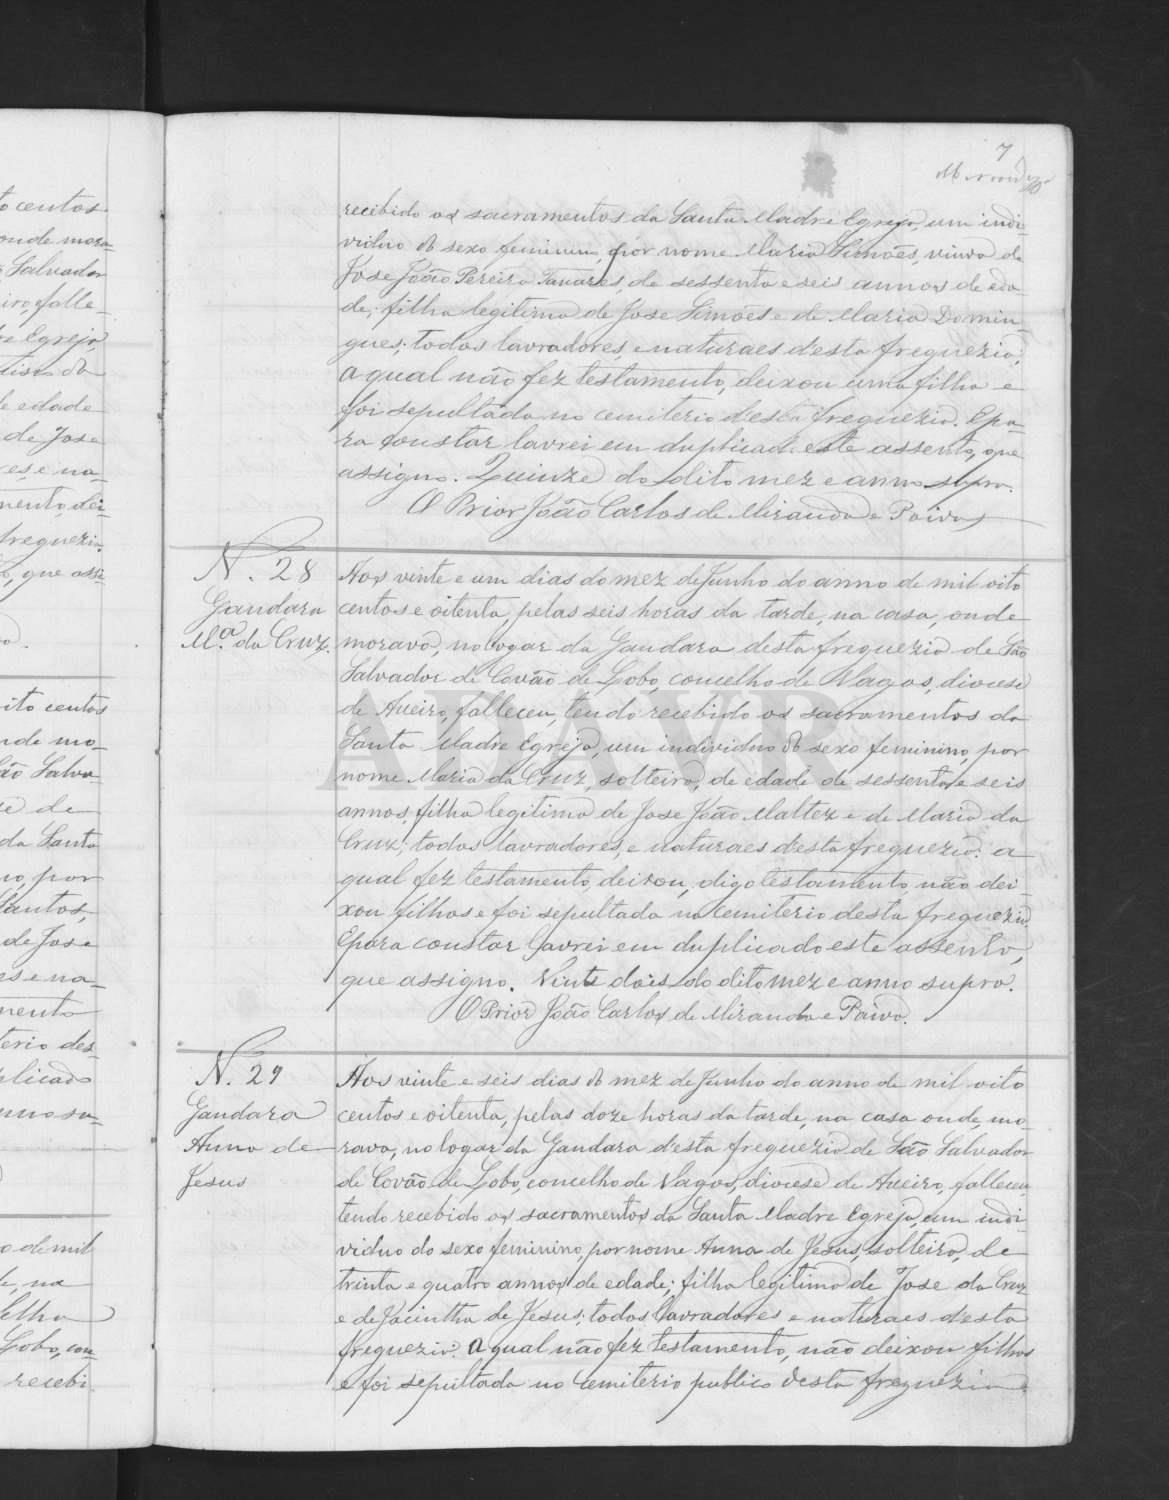 7
Miranda
recebido os sacramentos da Santa Madre Egreja, um indi-
viduo do sexo feminino, por nome Maria Simões, viuva de
Jose João Pereira Tavares, de sessenta e seis annos de eda-
de; filha legitima de Jose Simões e de Maria Domin-
gues; todos lavradores, e naturaes d'esta freguezia.
A qual não fez testamento, deixou uma filha e
foi sepultada no cemiterio d'esta freguezia. E pa-
ra constar lavrei em duplicado este assento, que
assigno. Quinze do dito mez e anno supra.
O Prior João Carlos de Miranda e Paiva
N. 28
Gandara
M.ª da Cruz.
Aos vinte e um dias do mez de Junho do anno de mil oito
centos e oitenta, pelas seis horas da tarde, na casa, onde
morava, no logar da Gandara desta freguezia de São
Salvador de Covão de Lobo, concelho de Vagos, diocese
de Aveiro, falleceu, tendo recebido os sacramentos da
Santa Madre Egreja, um individuo do sexo feminino, por
nome Maria da Cruz, solteira, de edade de sessenta e seis
annos, filha legitima de Jose João Maltez e de Maria da
Cruz; todos lavradores, e naturaes d'esta freguezia. a
qual fez testamento, deixou, digo testamento, não dei-
xou filhos e foi sepultada no cemiterio desta freguezia.
E para constar lavrei em duplicado este assento,
que assigno. Vinte dois do dito mez e anno supra.
O Prior João Carlos de Miranda e Paiva.
N. 29
Gandara
Anna de
Jesus
Aos vinte e seis dias do mez de Junho do anno de mil oito
centos e oitenta, pelas doze horas da tarde, na casa onde, mo-
rava, no logar da Gandara d'esta freguezia de São Salvador
de Covão de Lobo, concelho de Vagos, diocese de Aveiro, falleceu,
tendo recebido os sacramentos da Santa Madre Egreja, um indi-
viduo do sexo feminino, por nome Anna de Jesus, solteira, de
trinta e quatro annos de edade; filha legitima de Jose da Cruz
e de Jacintha de Jesus; todos lavradores e naturaes desta
freguezia. A qual não fez testamento, não deixou filhos
e foi sepultada no cemiterio publico desta freguezia
ADAVR